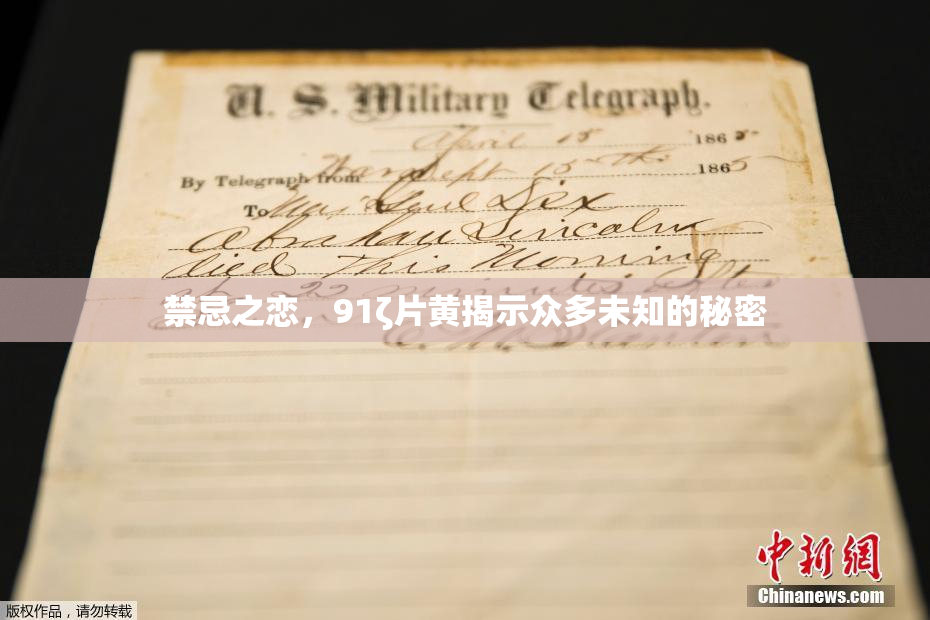 U. S. Military Telegraph.
April 15 1865
By Telegraph from War Dept 15th 1865
To Maj Genl Dix
Abraham Lincoln
died This Morning
at 22 minutes after
禁忌之恋，91ζ片黄揭示众多未知的秘密
E. M. Stanton
中新网
Chinanews.com
版权作品，请勿转载